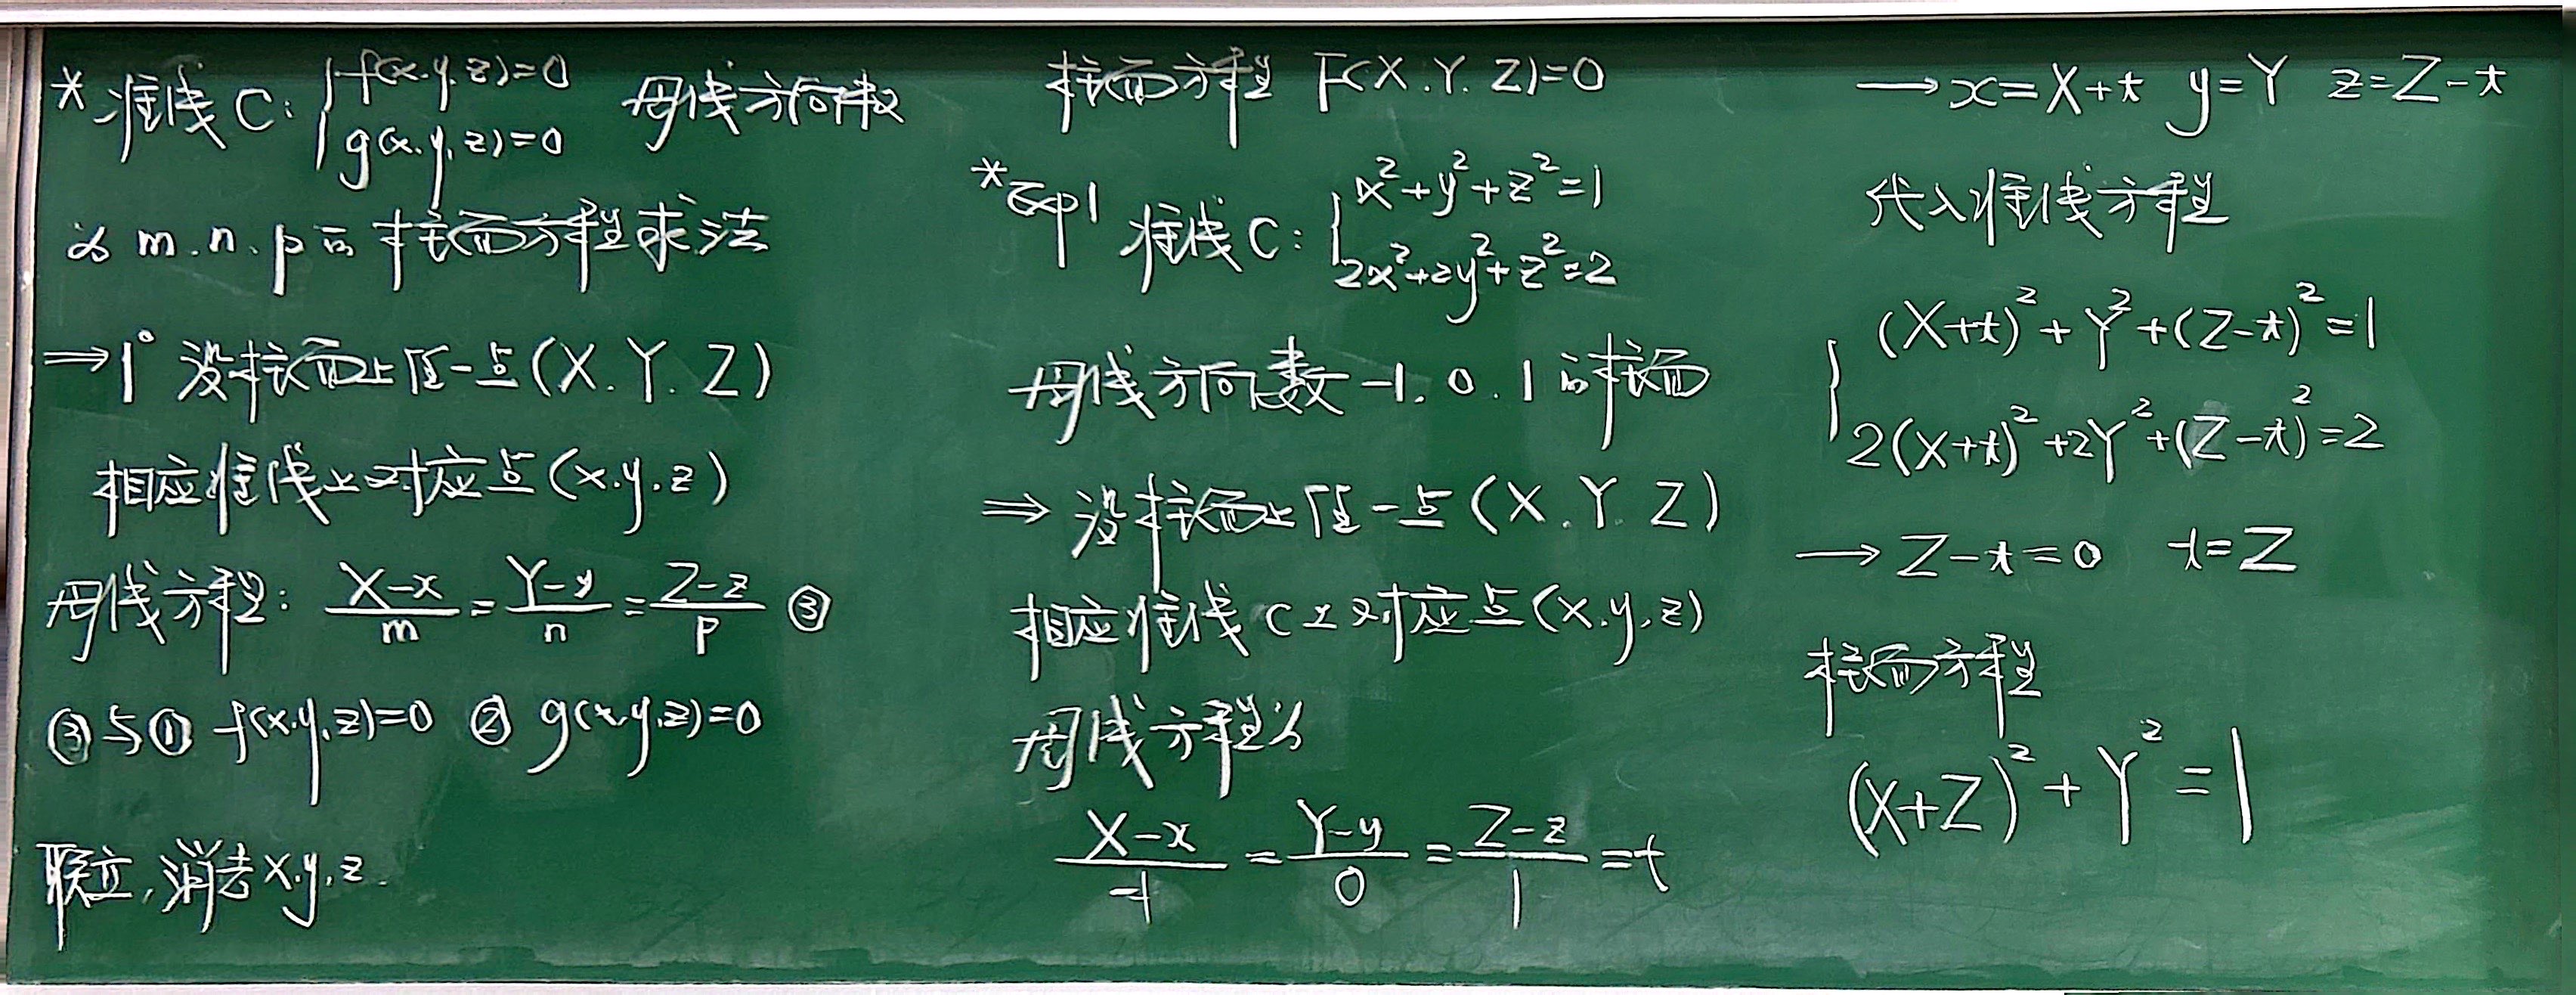 * 准线C: { f(x.y.z)=0 母线方向数
g(x.y,z)=0
为 m.n.p的柱面方程求法
⟹1° 设柱面上任一点(X.Y.Z)
相应准线上对应点(x.y.z)
母线方程: (X-x)/m = (Y-y)/n = (Z-z)/p ③
③与① f(x.y,z)=0 ② g(x,y,z)=0
联立,消去x.y.z.
柱面方程 F(X.Y.Z)=0
*Exp1 准线C: { x²+y²+z²=1
2x²+2y²+z²=2
母线方向数 -1. 0. 1 的柱面
⟹ 设柱面上任一点(X.Y.Z)
相应准线C上对应点(x.y,z)
母线方程为
(X-x)/-1 = (Y-y)/0 = (Z-z)/1 =t
→x=X+t y=Y z=Z-t
代入准线方程
{ (X+t)²+Y²+(Z-t)²=1
2(X+t)²+2Y²+(Z-t)²=2
→ Z-t=0 t=Z
柱面方程
(X+Z)²+Y²=1